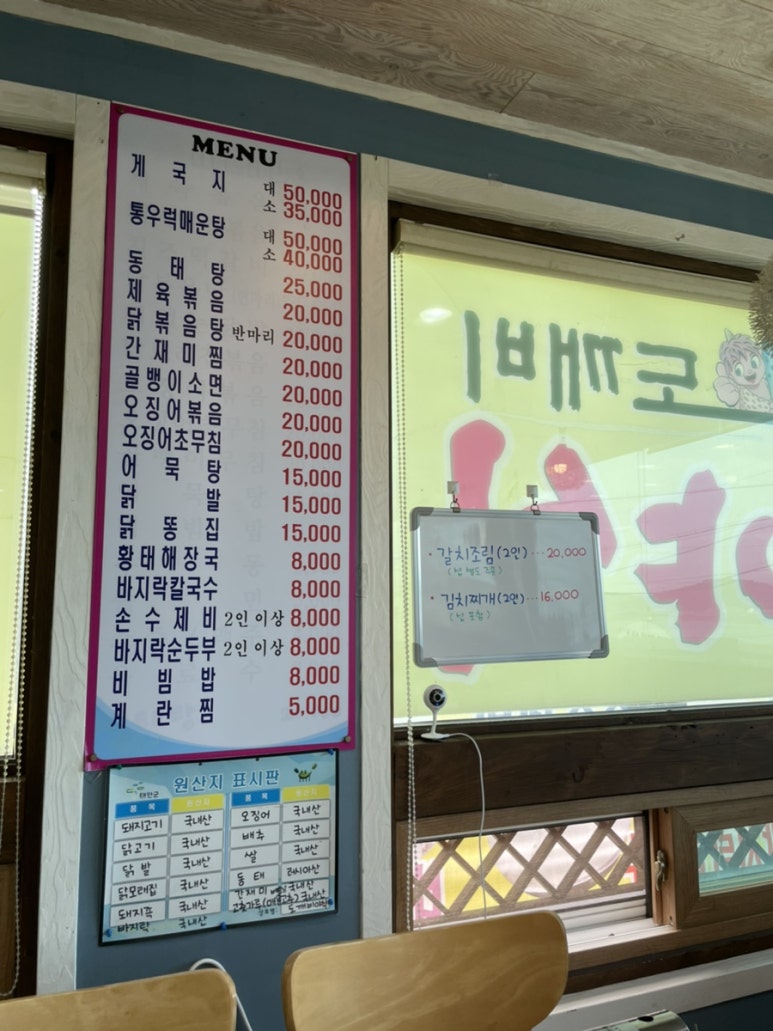 MENU
게국지 대 50,000
소 35,000
통우럭매운탕 대 50,000
소 40,000
동태탕 25,000
제육볶음 20,000
닭볶음탕 반마리 20,000
간재미찜 20,000
골뱅이소면 20,000
오징어볶음 20,000
오징어초무침 20,000
어묵탕 15,000
닭발 15,000
닭똥집 15,000
황태해장국 8,000
바지락칼국수 8,000
손수제비 2인 이상 8,000
바지락순두부 2인 이상 8,000
비빔밥 8,000
계란찜 5,000
도깨비
야
·갈치조림(2인)···20,000
·김치찌개(2인)···16,000
(밥 포함)
태안군 원산지 표시판
품목 원산지 품목 원산지
돼지고기 국내산 오징어 국내산
닭고기 국내산 배추 국내산
닭발 국내산 쌀 국내산
닭모래집 국내산 동태 러시아산
돼지족 국내산 간재미 국내산
바지락 국내산 고춧가루 국내산